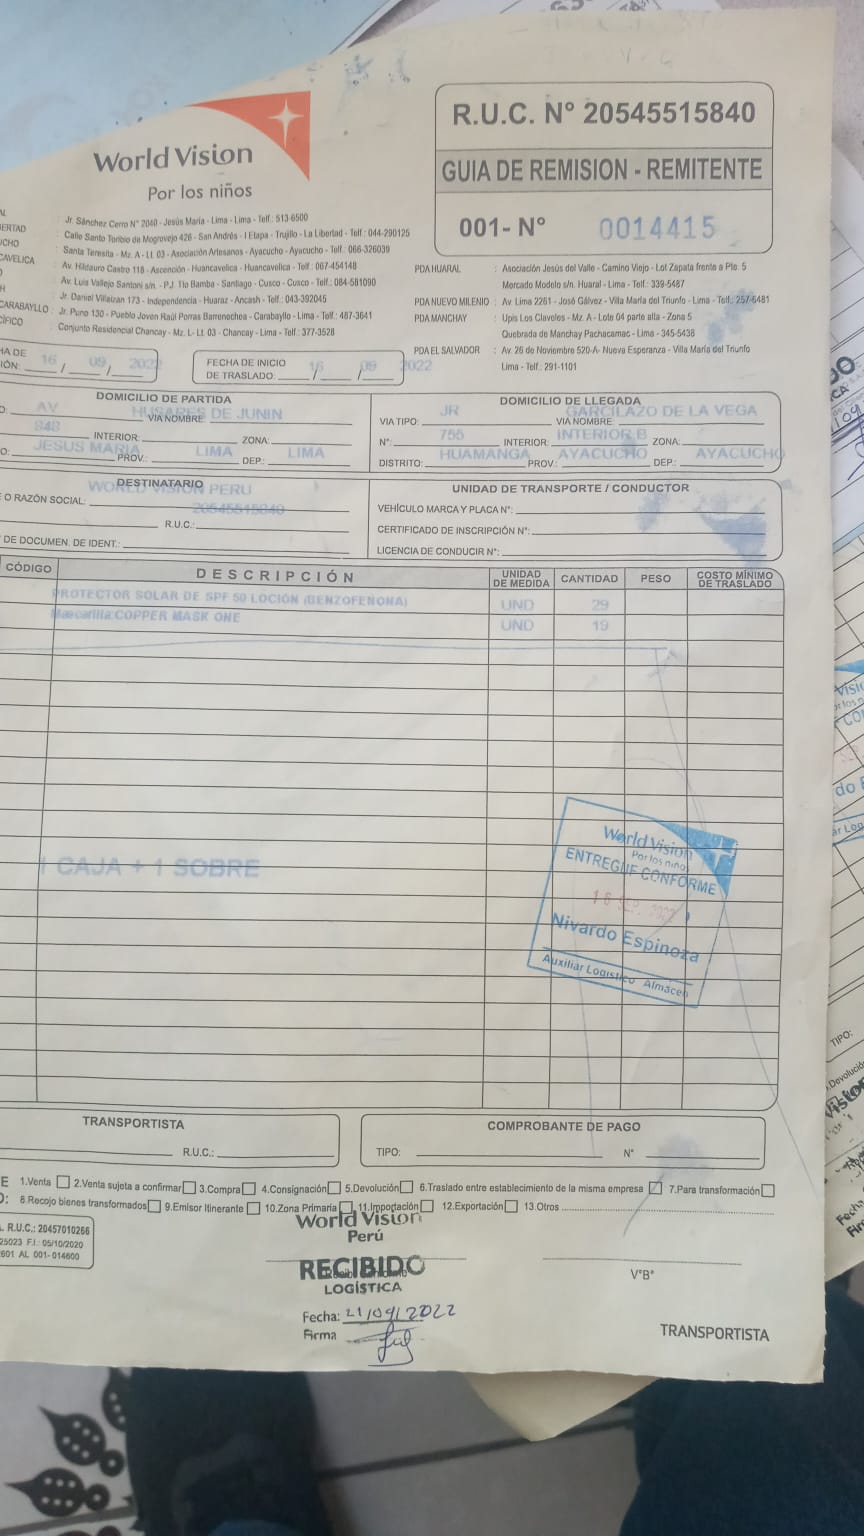 World Vision
Por los niños
R.U.C. N° 20545515840
GUIA DE REMISION - REMITENTE
001- N° 0014415
Jr. Sánchez Cerro N° 2040 - Jesús María - Lima - Lima - Telf.: 513-6500
Calle Santo Toribio de Mogrovejo 426 - San Andrés - I Etapa - Trujillo - La Libertad - Telf.: 044-290125
Santa Teresita - Mz. A - Lt. 03 - Asociación Artesanos - Ayacucho - Ayacucho - Telf.: 066-326039
Av. Hildauro Castro 118 - Ascención - Huancavelica - Huancavelica - Telf.: 067-454148
Av. Luis Vallejo Santoni s/n. - P.J. Tio Bamba - Santiago - Cusco - Cusco - Telf.: 084-581090
Jr. Daniel Villaizan 173 - Independencia - Huaraz - Ancash - Telf.: 043-392045
CARABAYLLO : Jr. Puno 130 - Pueblo Joven Raúl Porras Barrenechea - Carabayllo - Lima - Telf.: 487-3641
Conjunto Residencial Chancay - Mz. L- Lt. 03 - Chancay - Lima - Telf.: 377-3528
PDA HUARAL : Asociación Jesús del Valle - Camino Viejo - Lot Zapata frente a Pte. 5
Mercado Modelo s/n. Huaral - Lima - Telf.: 339-5487
PDA NUEVO MILENIO : Av. Lima 2261 - José Gálvez - Villa María del Triunfo - Lima - Telf.: 257-6481
PDA MANCHAY : Upis Los Claveles - Mz. A - Lote 04 parte alta - Zona 5
Quebrada de Manchay Pachacamac - Lima - 345-5438
PDA EL SALVADOR : Av. 26 de Noviembre 520-A- Nueva Esperanza - Villa María del Triunfo
Lima - Telf.: 291-1101
16 / 09 / 2022
FECHA DE INICIO
DE TRASLADO: 16 / 09 / 2022
DOMICILIO DE PARTIDA
AV HUSARES DE JUNIN
VIA NOMBRE:
848 INTERIOR: ZONA:
JESUS MARIA PROV.: LIMA DEP.: LIMA
DOMICILIO DE LLEGADA
VIA TIPO: JR VIA NOMBRE: GARCILAZO DE LA VEGA
N°: 755 INTERIOR: INTERIOR B ZONA:
DISTRITO: HUAMANGA PROV.: AYACUCHO DEP.: AYACUCHO
DESTINATARIO
WORLD VISION PERU
O RAZÓN SOCIAL:
20545515840
R.U.C.:
DE DOCUMEN. DE IDENT.:
UNIDAD DE TRANSPORTE / CONDUCTOR
VEHÍCULO MARCA Y PLACA N°:
CERTIFICADO DE INSCRIPCIÓN N°:
LICENCIA DE CONDUCIR N°:
CÓDIGO DESCRIPCIÓN UNIDAD DE MEDIDA CANTIDAD PESO COSTO MÍNIMO DE TRASLADO
PROTECTOR SOLAR DE SPF 50 LOCIÓN (BENZOFENONA) UND 29
Mascarilla:COPPER MASK ONE UND 19
1 CAJA + 1 SOBRE
World Vision
Por los niños
ENTREGUE CONFORME
16 SEP. 2022
Nivardo Espinoza
Auxiliar Logístico Almacen
TRANSPORTISTA
R.U.C.:
COMPROBANTE DE PAGO
TIPO: N°
1.Venta 2.Venta sujeta a confirmar 3.Compra 4.Consignación 5.Devolución 6.Traslado entre establecimiento de la misma empresa 7.Para transformación
8.Recojo bienes transformados 9.Emisor Itinerante 10.Zona Primaria 11.Importación 12.Exportación 13.Otros
R.U.C.: 20457010266
25023 F.I.: 05/10/2020
601 AL 001- 014600
World Vision
Perú
RECIBIDO
LOGÍSTICA
Fecha: 21/09/2022
Firma
V°B°
TRANSPORTISTA